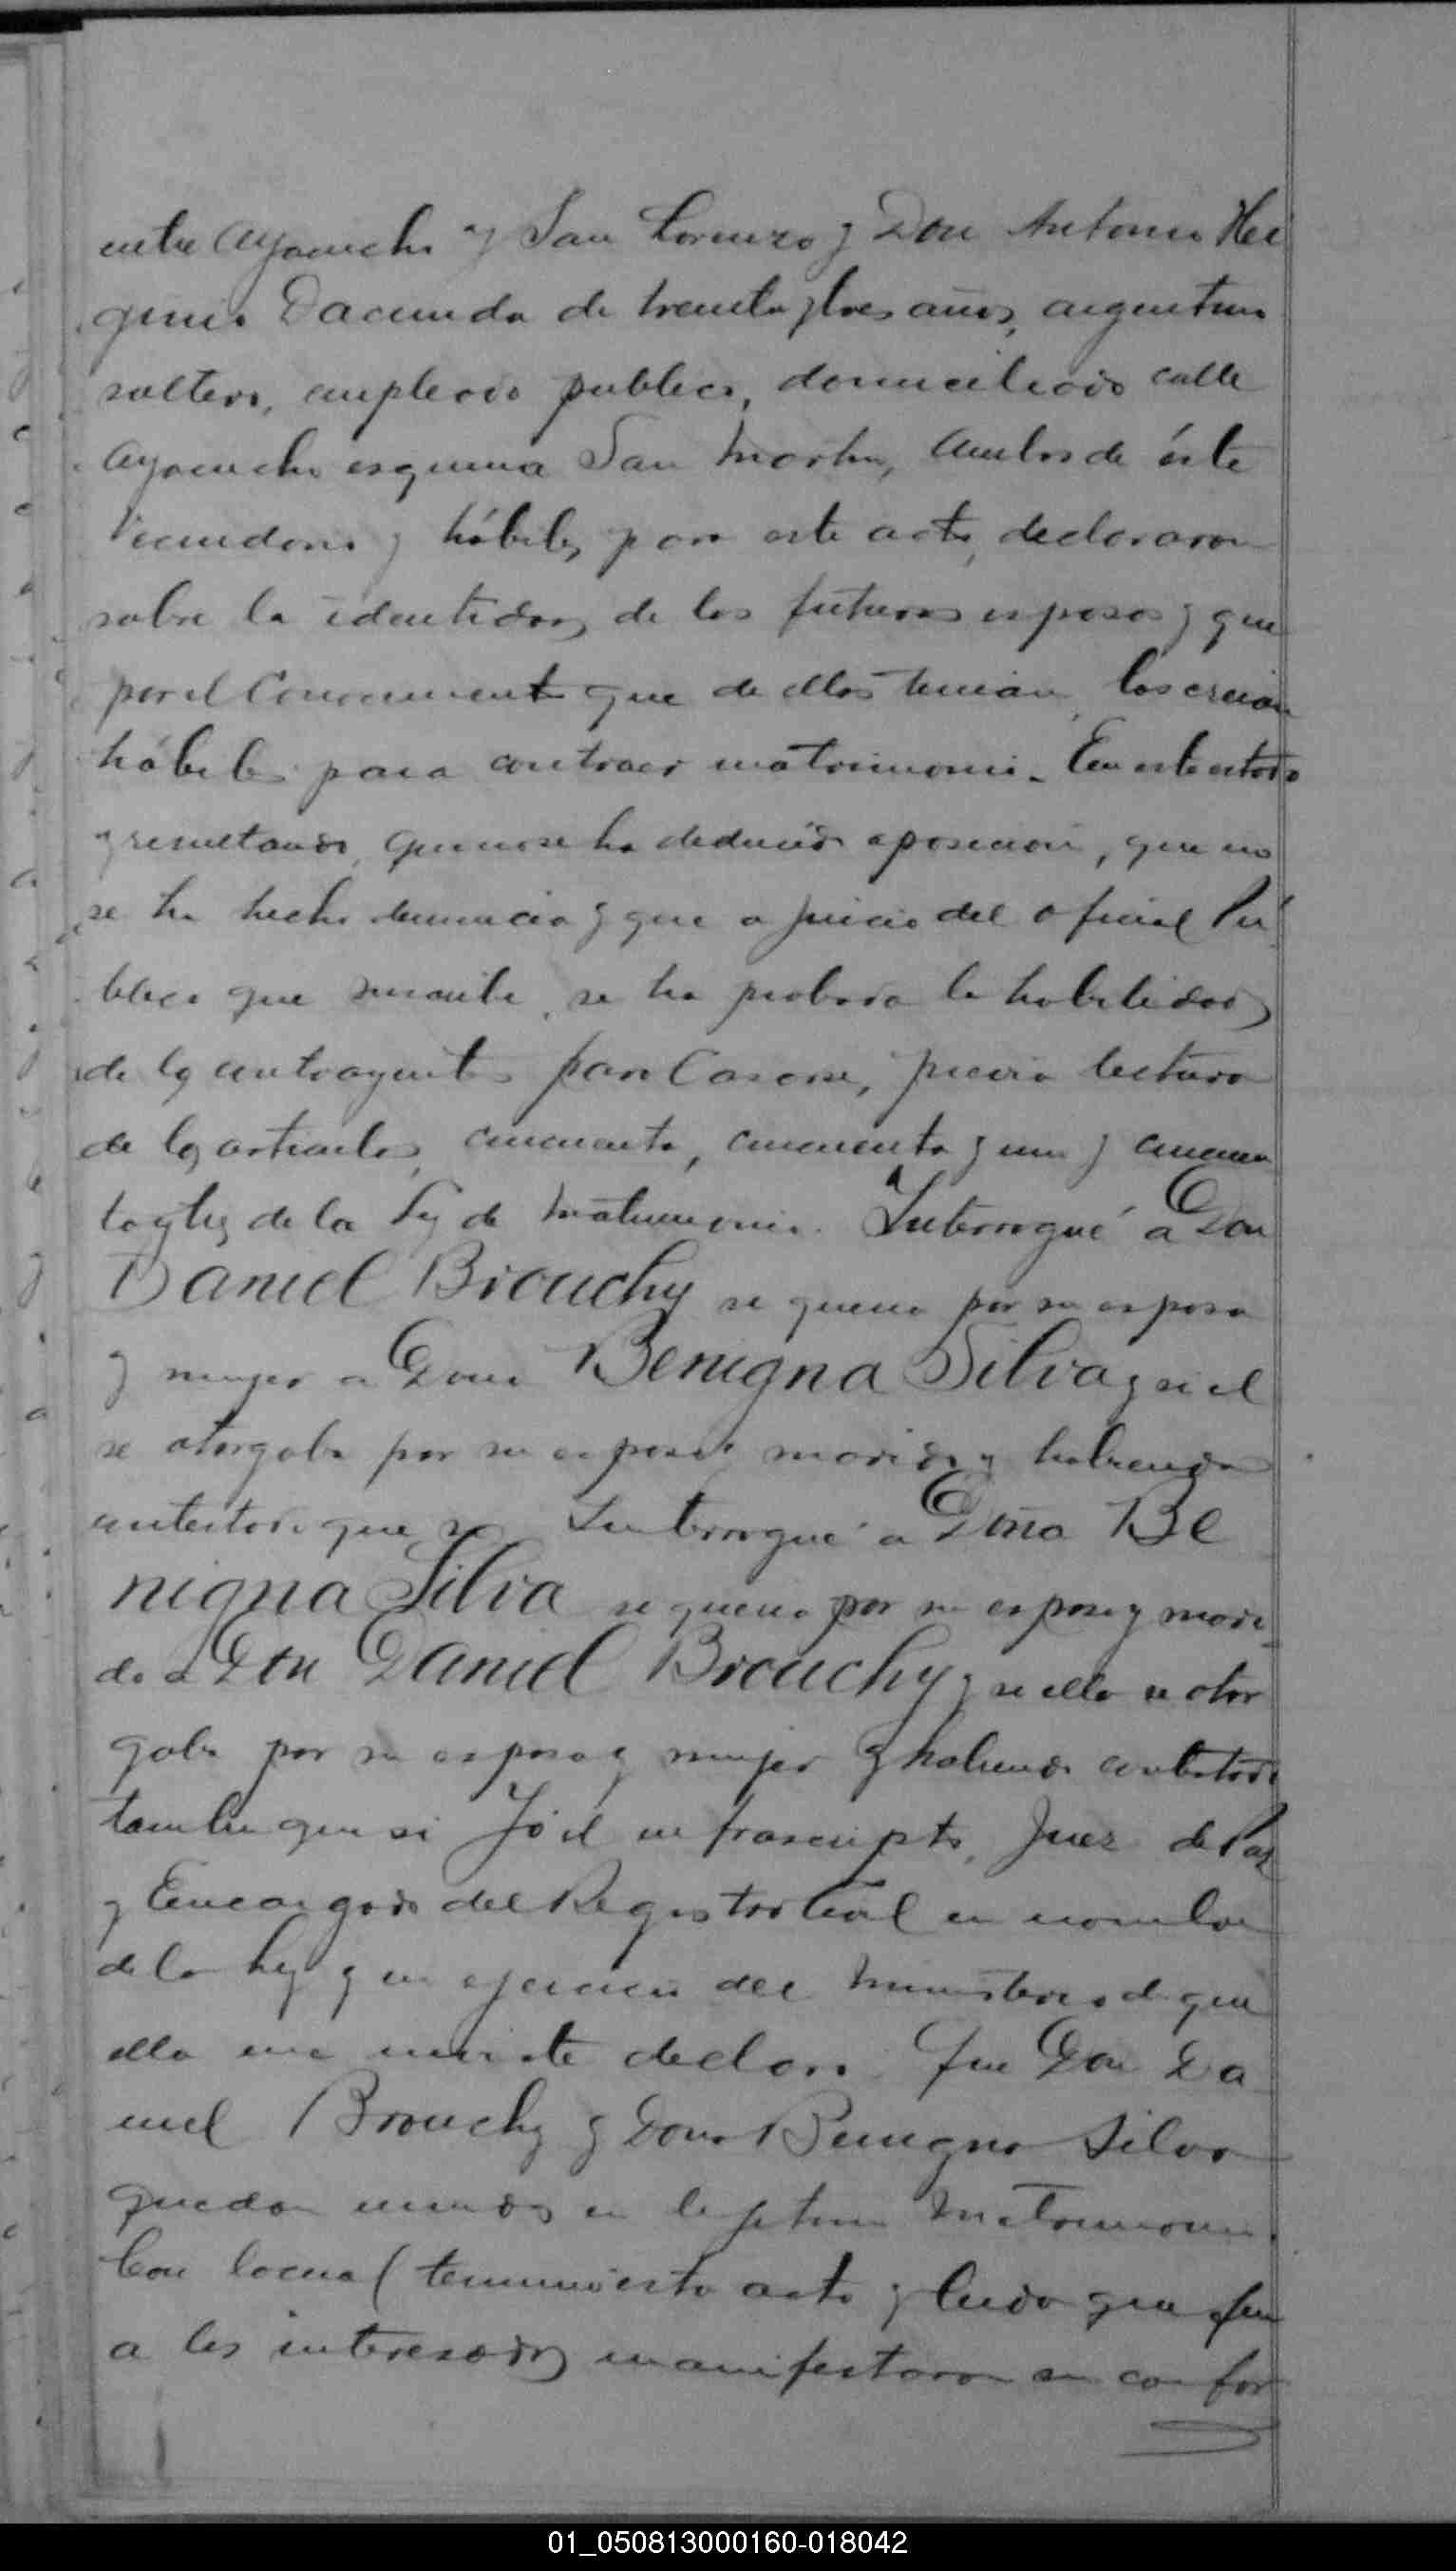 entre Ayacucho y San Lorenzo y Don Antonio Hei
ginio Dacunda de treinta y tres años, argentino
soltero, empleado publico, domiciliado calle
Ayacucho esquina San Martin, ambos de éste
vecindario y hábiles para este acto, declararon
sobre la identidad de los futuros esposos y que
por el Conocimiento que de ellos tenian, los creian
hábiles para contraer matrimonio. En este estado
y resultando, que no se ha deducido oposicion, que no
se ha hecho denuncia y que a juicio del oficial Pú
blico que suscribe, se ha probado la habilidad
de los contrayentes para Casarse, previa lectura
de los articulos, cincuenta, cincuenta y uno y cincuen
ta y tres de la Ley de Matrimonio. Interrogué a Don
Daniel Brouchy si queria por su esposa
y mujer a Doña Benigna Silva y si el
se otorgaba por su esposo y marido y habiendo
contestado que si Interrogué a Doña Be
nigna Silva si queria por su esposo y mari
do a Don Daniel Brouchy y si ella se otor
gaba por su esposa y mujer y habiendo contestado
tambien que si Yó el infrascripto, Juez de Paz
y Encargado del Registro Civil en nombre
de la Ley y en ejercicio del ministerio de que
ella me inviste declaro: Que Don Da
niel Brouchy y Doña Benigna Silva
quedan unidos en lejitimo Matrimonio.
Con lo cual terminó este acto y leida que fue
a los interesados manifestaron su confor
01_050813000160-018042